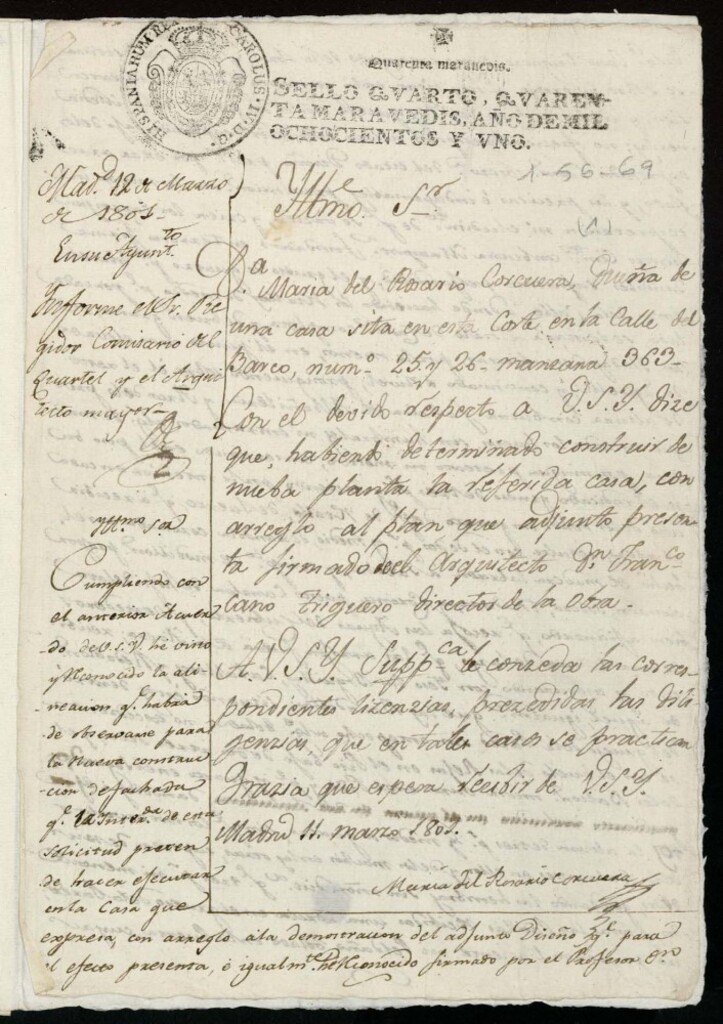 HISPANIARUM REX CAROLUS IV D G
Quarenta maravedis.
SELLO QVARTO, QVAREN-
TA MARAVEDIS, AÑO DE MIL
OCHOCIENTOS Y VNO.
1-56-69
(1)
Mad.d 12 de Marzo
de 1801-
En su Ayunt.to
Ynforme el Sr. Re
gidor Comisario del
Quartel y el Arqui
tecto mayor
Yltmo Sor
Cumpliendo con
el anterior Acuer
do de V.S.Y. he visto
y reconocido la ali-
neacion q.e habrá
de observarse para
la nueva construc-
cion de fachada
q.e la Inter.da de esta
solicitud preten
de hacer ejecutar
en la Casa que
expresa, con arreglo a la demostracion del adjunto Diseño q.e para
el efecto presenta, é igualm.te he reconocido firmado por el Profesor Dn
Yllmo. Sr.
D.a Maria del Rosario Corcuera, Dueña de
una casa sita en esta Corte en la Calle del
Barco, num.o 25 y 26 manzana 363-
Con el devido respecto a V.S.Y. dize
que, habiendo determinado construir de
nueba planta la referida casa, con
arreglo al plan que adjunto presen-
ta firmado del Arquitecto Dn Fran.co
Cano Triguero director de la obra.
A V.S.Y. Supp.ca le conzeda las corres-
pondientes lizenzias, prezedidas las dili
genzias, que en tales casos se practican
Grazia que espera recibir de V.S.Y.
Madrid 11 marzo 1801.
Maria del Rosario Corcuera